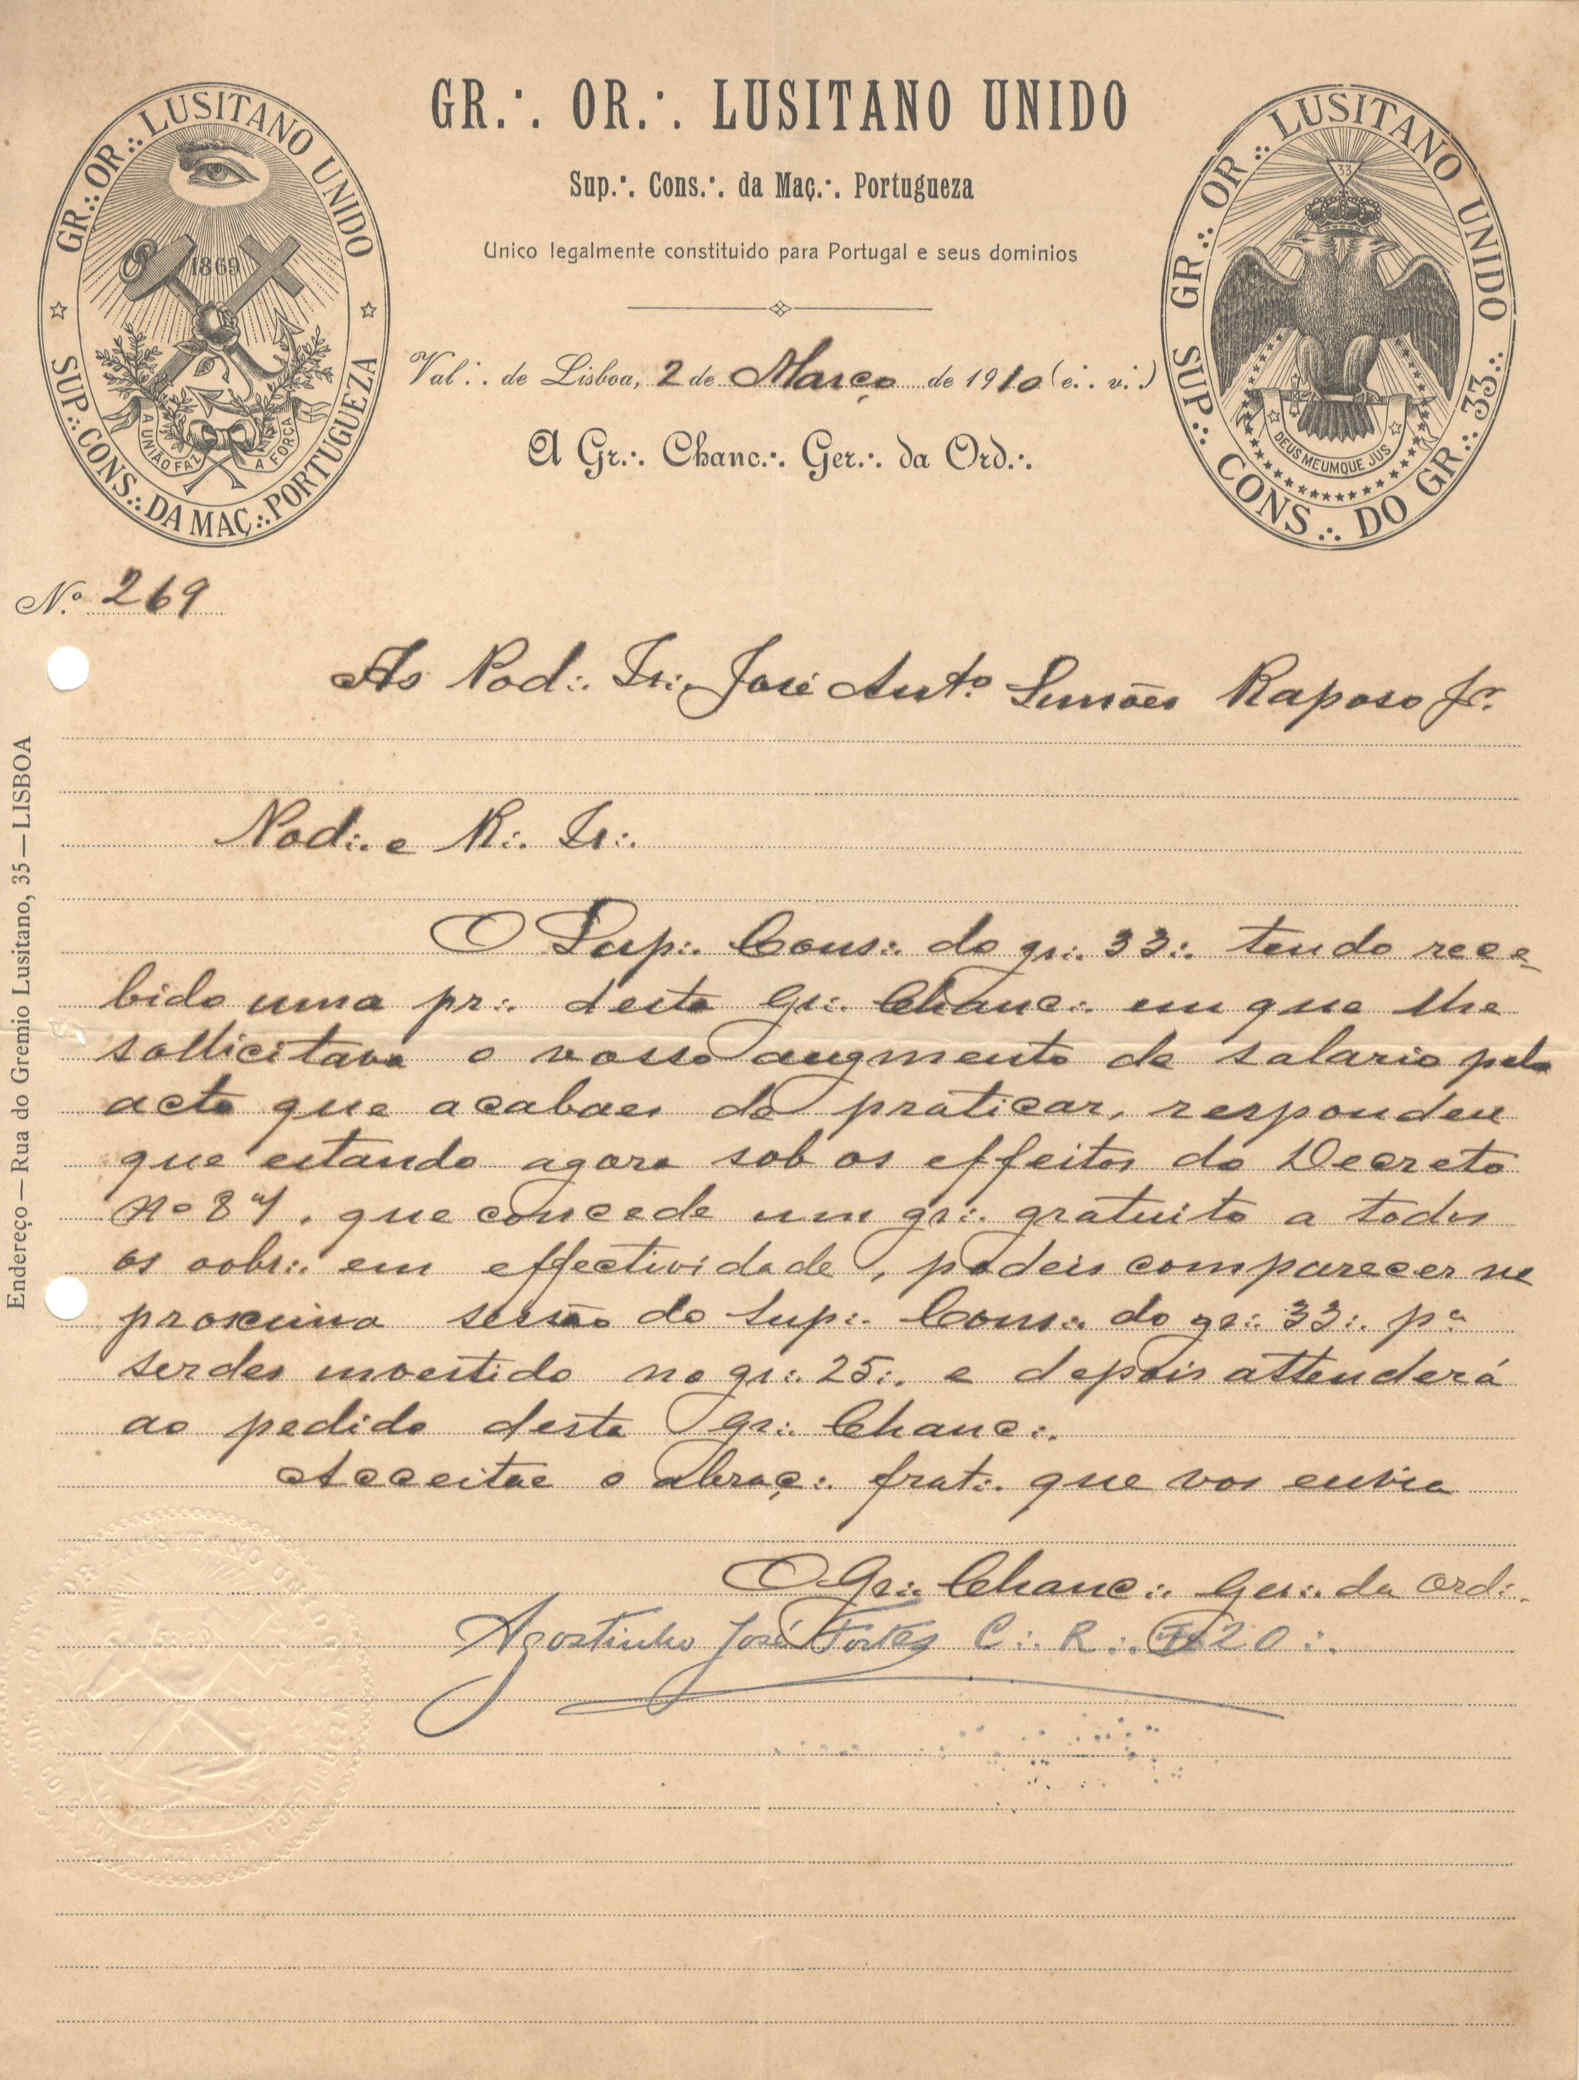 GR.·. OR.·. LUSITANO UNIDO
Sup.·. Cons.·. da Maç.·. Portugueza
Unico legalmente constituido para Portugal e seus dominios
GR.·. OR.·. LUSITANO UNIDO
SUP.·. CONS.·. DA MAÇ.·. PORTUGUEZA
1869
A UNIÃO FAZ A FORÇA
GR.·. OR.·. LUSITANO UNIDO
SUP.·. CONS.·. DO GR.·. 33.·.
33
DEUS MEUMQUE JUS
Val.·. de Lisboa, 2 de Março de 1910 (e.·. v.·.)
A Gr.·. Chanc.·. Ger.·. da Ord.·.
N.º 269
Ao Pod.·. Ir.·. José Ant.º Simões Raposo Jr.
Pod.·. e R.·. Ir.·.
O Sup.·. Cons.·. do gr.·. 33.·. tendo rece-
bido uma pr.·. desta Gr.·. Chanc.·. em que lhe
sollicitava o vosso augmento de salario pelo
acto que acabaes de praticar, respondeu
que estando agora sob os effeitos do Decreto
nº 87, que concede um gr.·. gratuito a todos
os oobr.·. em effectividade, podeis comparecer na
proxima sessão do Sup.·. Cons.·. do gr.·. 33.·. pª
serdes investido no gr.·. 25.·. e depois attenderá
ao pedido desta Gr.·. Chanc.·.
Acceitae o abraç.·. frat.·. que vos envia
O Gr.·. Chanc.·. Ger.·. da Ord.·.
Agostinho José Fortes C.·. R.·. 20.·.
Endereço — Rua do Gremio Lusitano, 35 — LISBOA